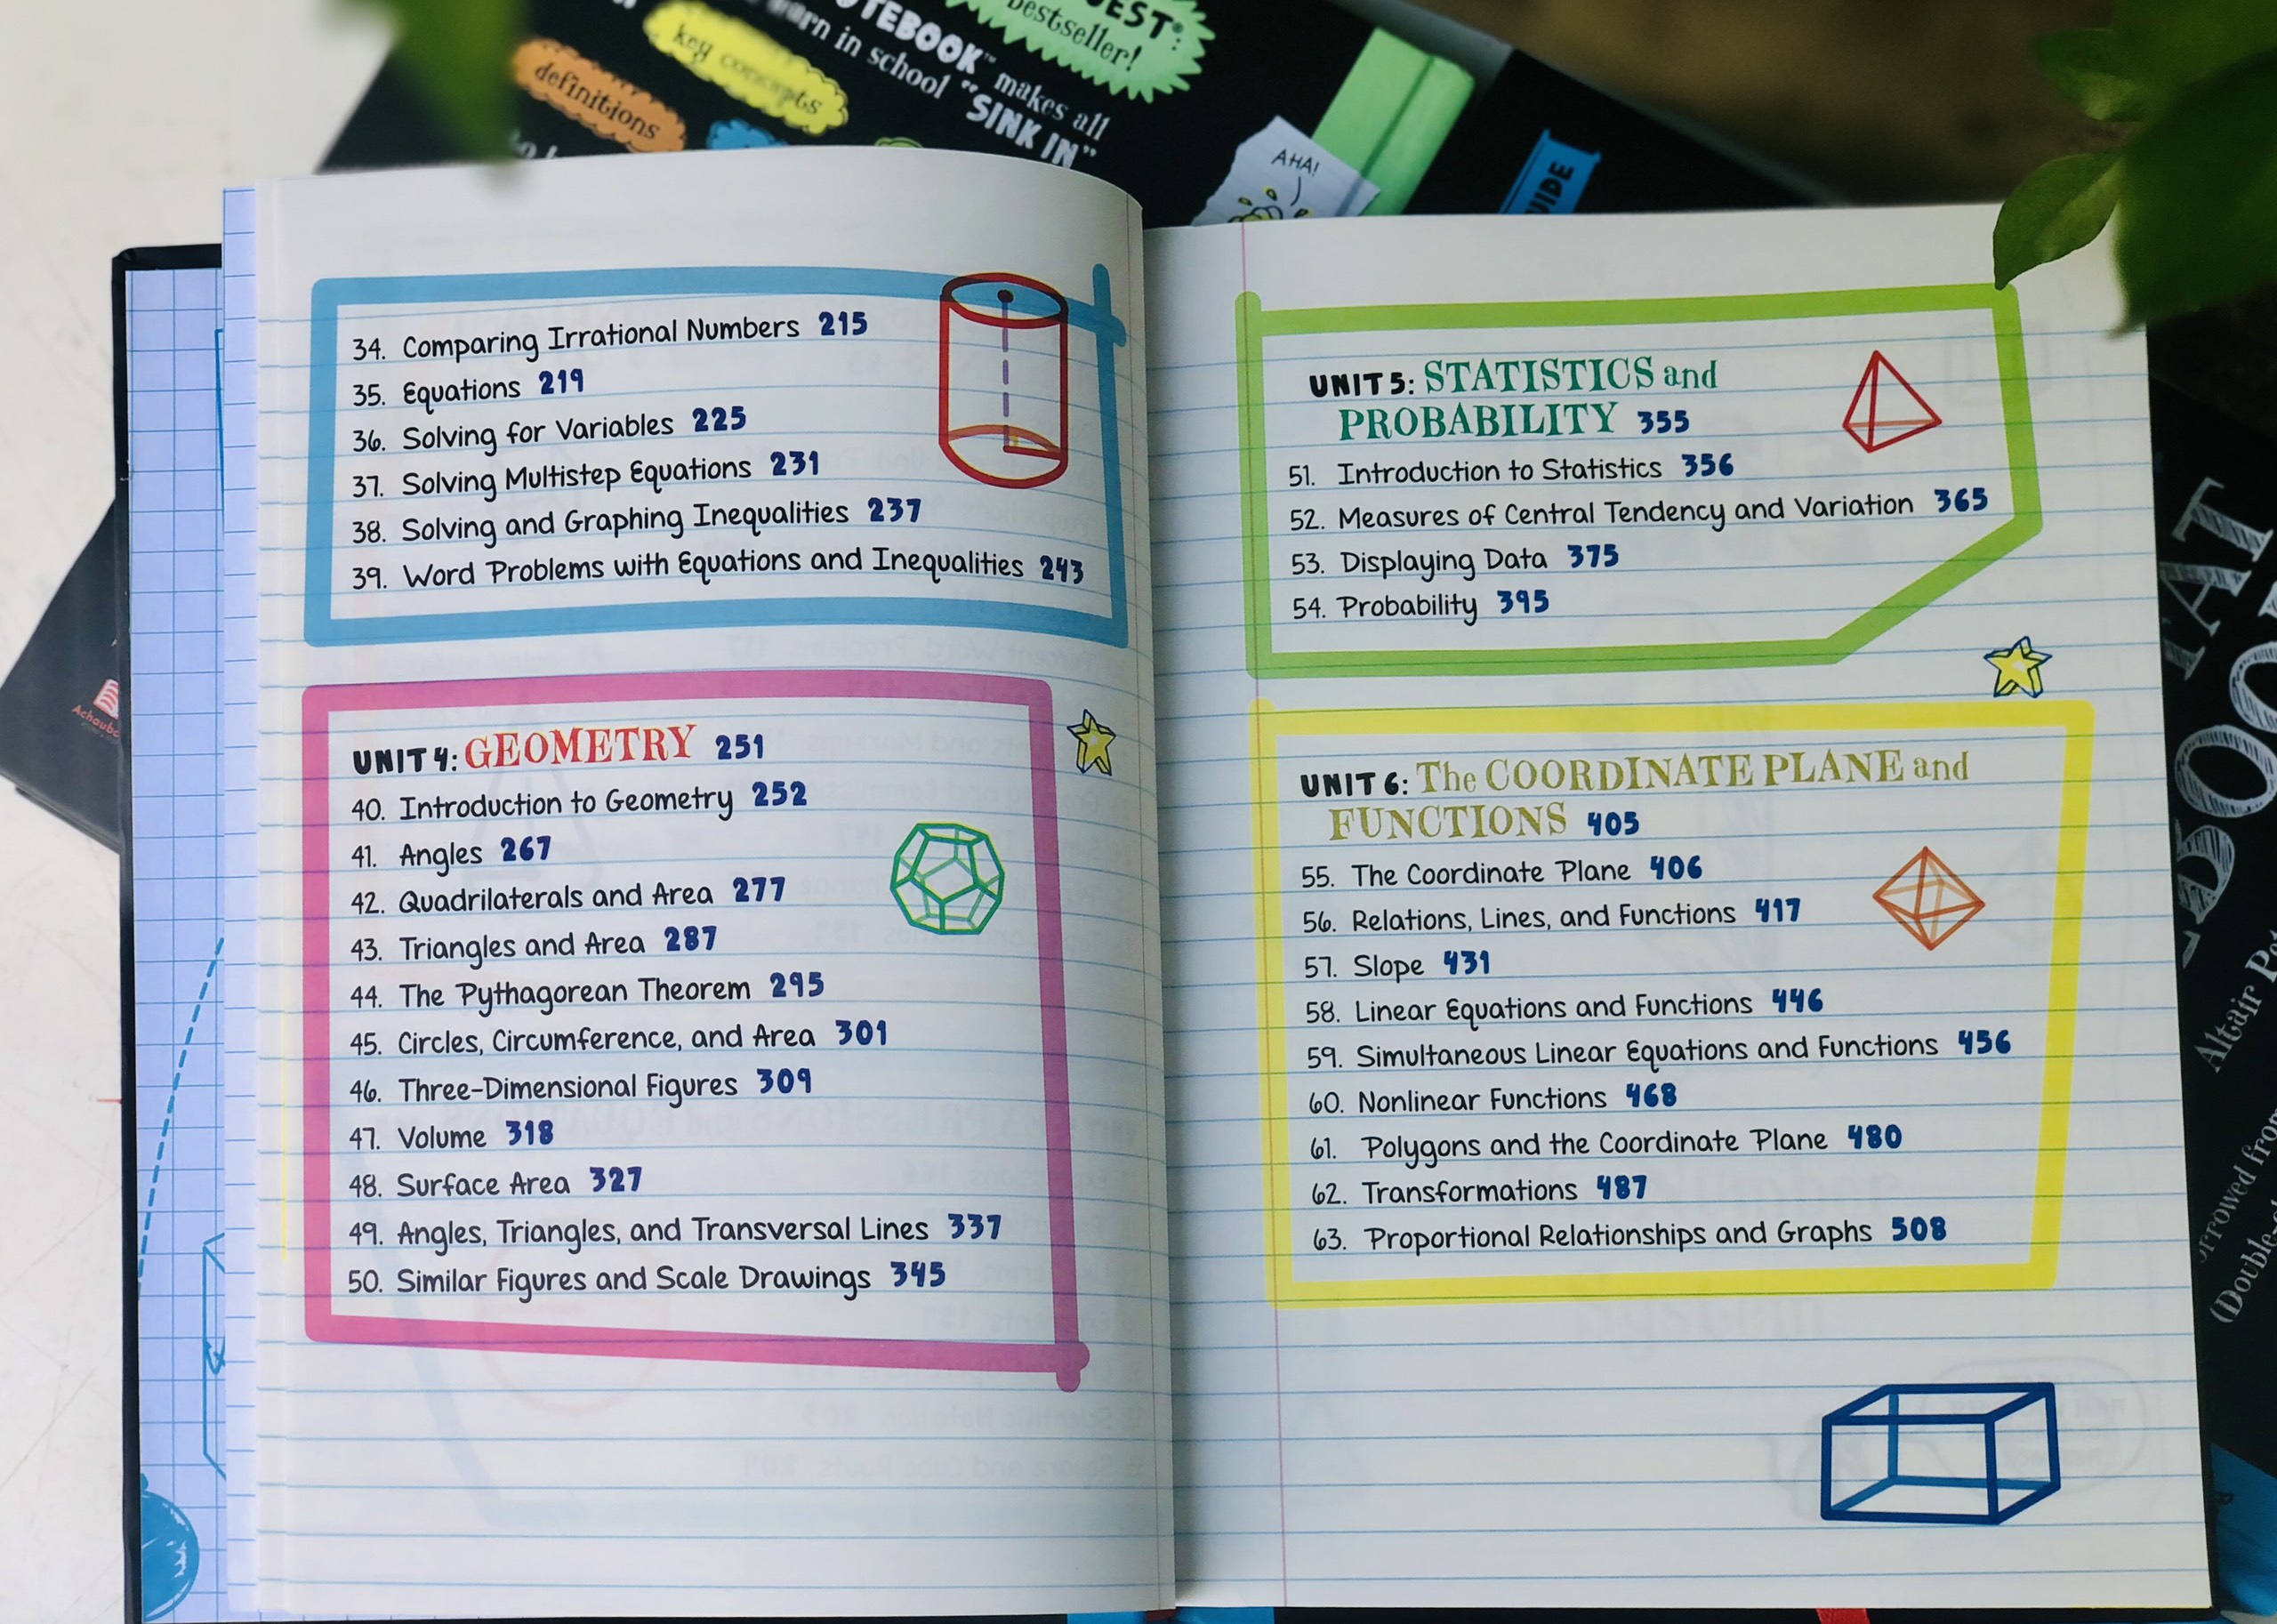 EST:
bestseller!
key concepts
definitions
NOTEBOOK™ makes all
learn in school "SINK IN"
AHA!
34. Comparing Irrational Numbers 215
35. Equations 219
36. Solving for Variables 225
37. Solving Multistep Equations 231
38. Solving and Graphing Inequalities 237
39. Word Problems with Equations and Inequalities 243
UNIT 4: GEOMETRY 251
40. Introduction to Geometry 252
41. Angles 267
42. Quadrilaterals and Area 277
43. Triangles and Area 287
44. The Pythagorean Theorem 295
45. Circles, Circumference, and Area 301
46. Three-Dimensional Figures 309
47. Volume 318
48. Surface Area 327
49. Angles, Triangles, and Transversal Lines 337
50. Similar Figures and Scale Drawings 345
UNIT 5: STATISTICS and
PROBABILITY 355
51. Introduction to Statistics 356
52. Measures of Central Tendency and Variation 365
53. Displaying Data 375
54. Probability 395
UNIT 6: The COORDINATE PLANE and
FUNCTIONS 405
55. The Coordinate Plane 406
56. Relations, Lines, and Functions 417
57. Slope 431
58. Linear Equations and Functions 446
59. Simultaneous Linear Equations and Functions 456
60. Nonlinear Functions 468
61. Polygons and the Coordinate Plane 480
62. Transformations 487
63. Proportional Relationships and Graphs 508
Altair